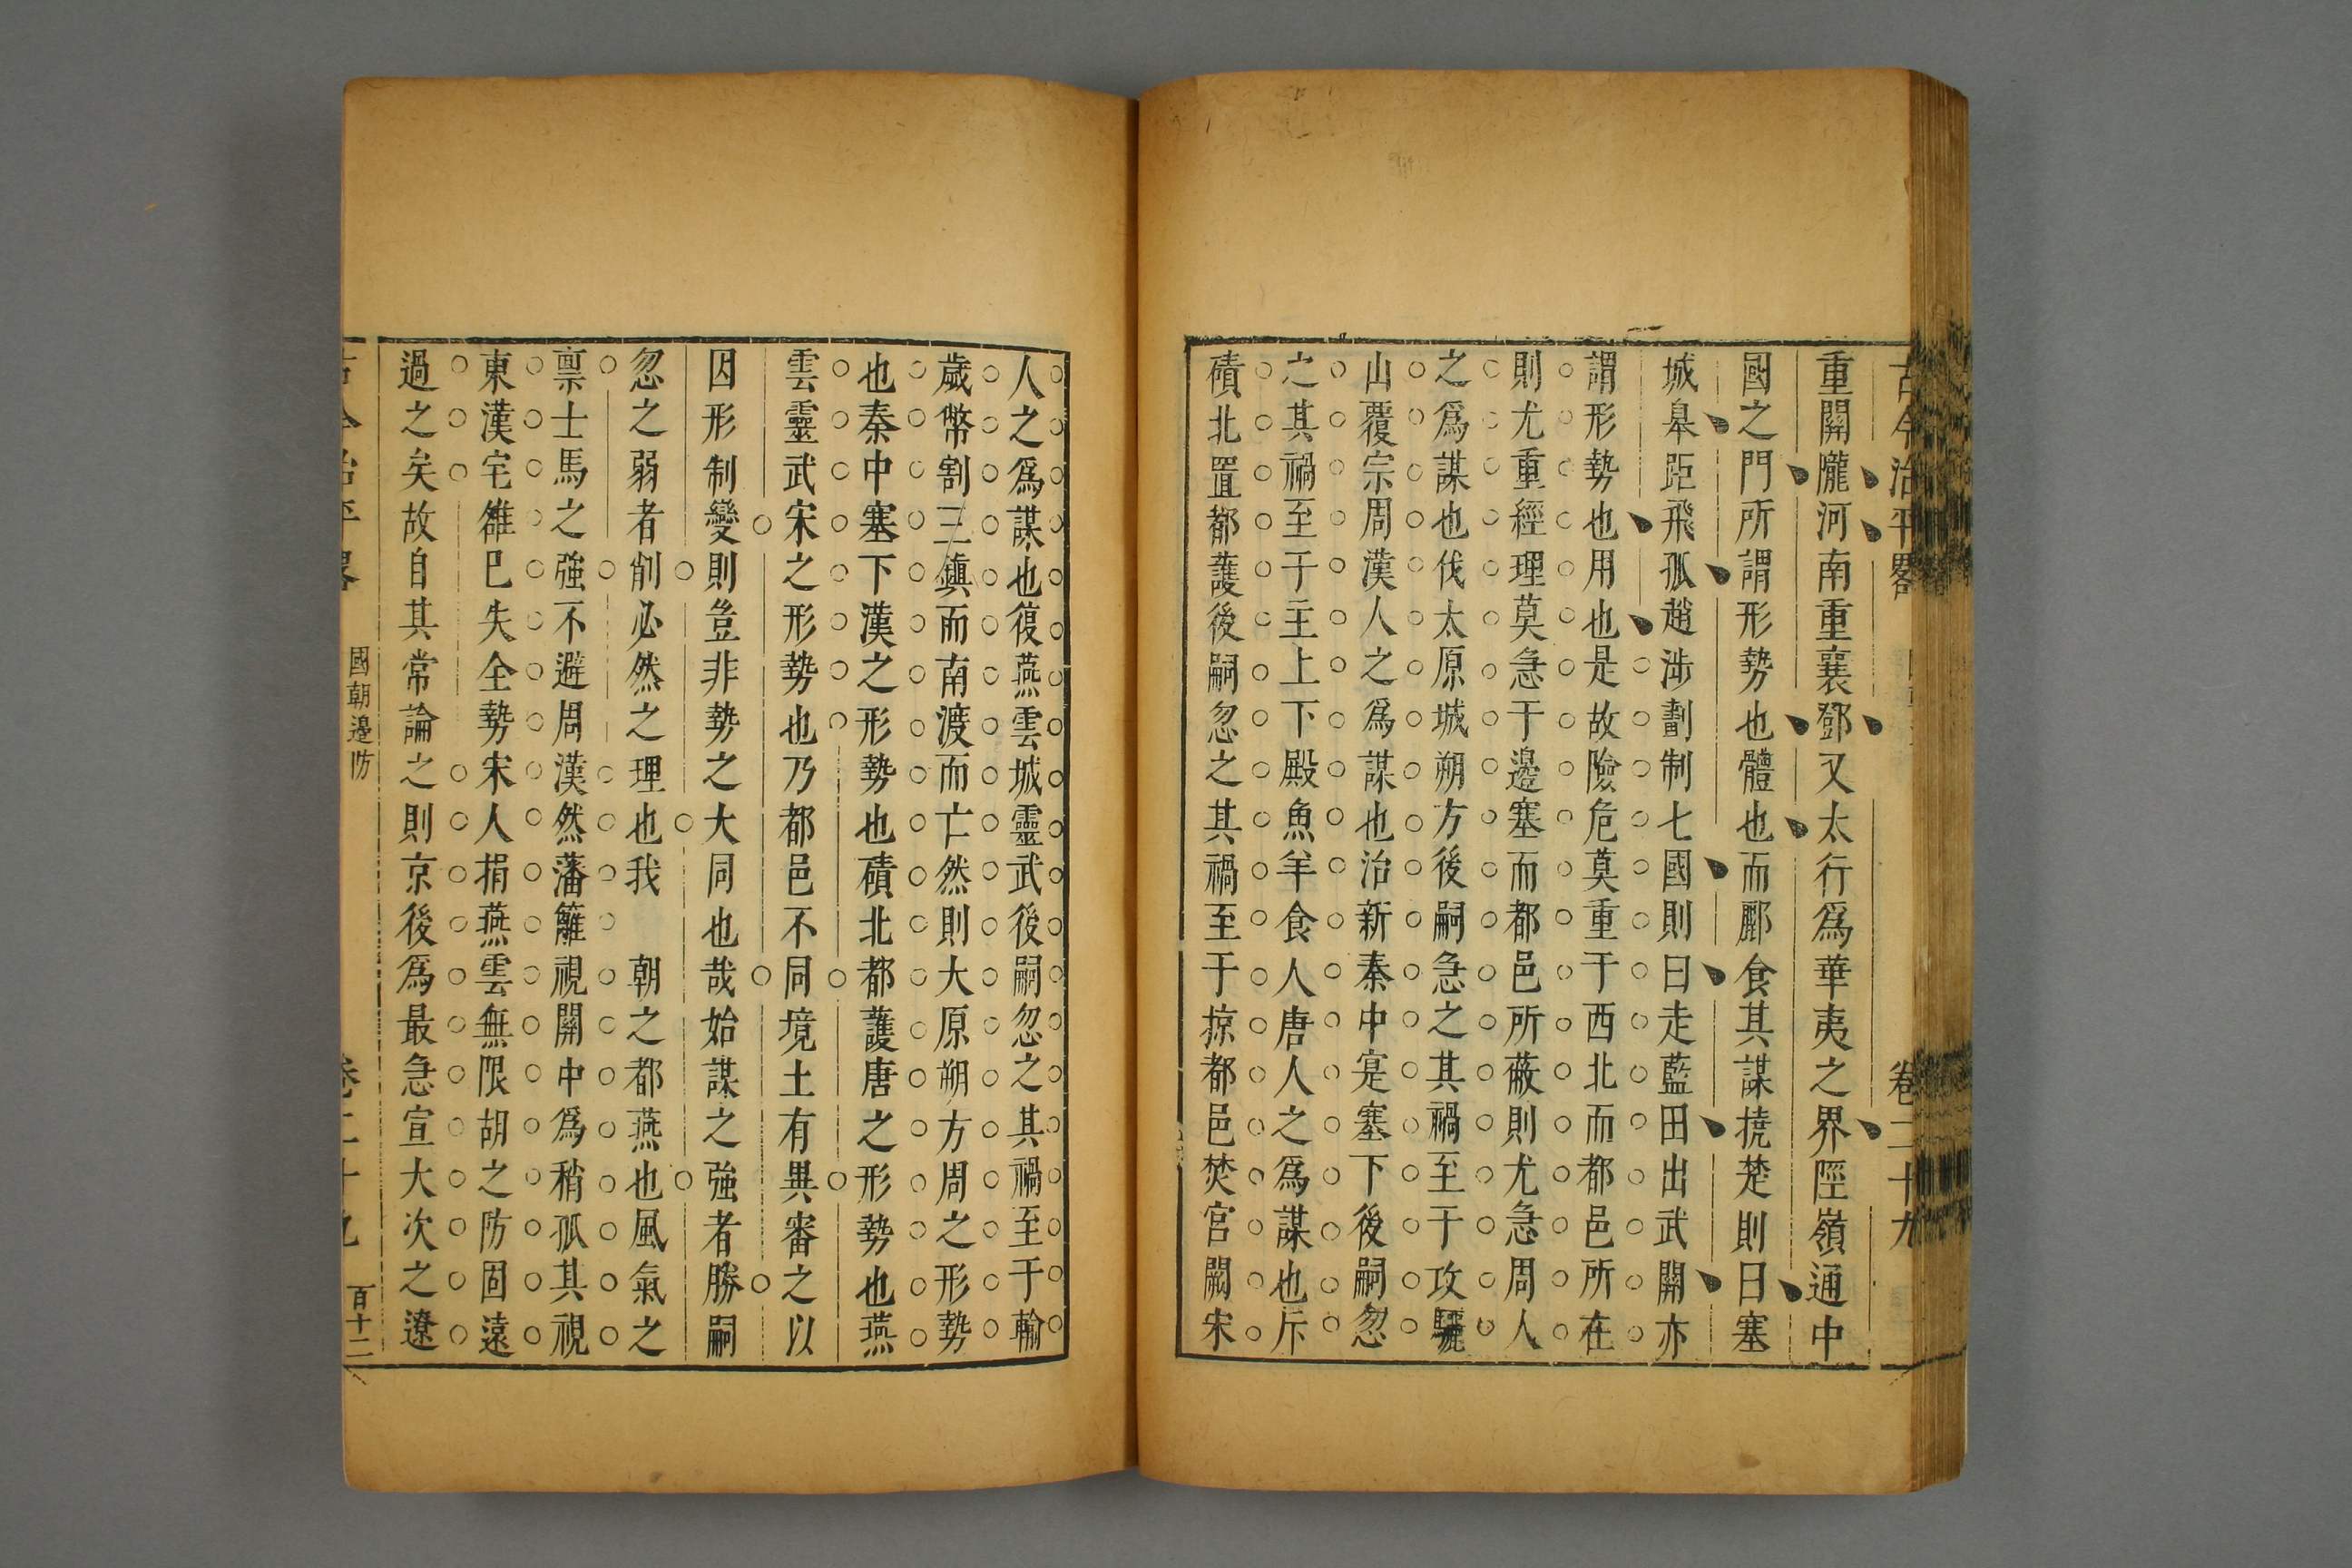 古今治平畧 卷二十九
重關隴河南重襄鄧又太行爲華夷之界陘嶺通中
國之門所謂形勢也體也而酈食其謀撓楚則曰塞
城皋距飛孤趙涉劃制七國則曰走藍田出武關亦
謂形勢也用也是故險危莫重于西北而都邑所在
則尤重經理莫急于邊塞而都邑所蔽則尤急周人
之爲謀也伐太原城朔方後嗣急之其禍至于攻驪
山覆宗周漢人之爲謀也治新秦中寔塞下後嗣忽
之其禍至于主上下殿魚羊食人唐人之爲謀也斥
磧北置都護後嗣忽之其禍至于掠都邑焚宮闕宋
人之爲謀也復燕雲城靈武後嗣忽之其禍至于輸
歲幣割三鎮而南渡而亡然則大原朔方周之形勢
也秦中塞下漢之形勢也磧北都護唐之形勢也燕
雲靈武宋之形勢也乃都邑不同境土有異審之以
因形制變則豈非勢之大同也哉始謀之強者勝嗣
忽之弱者削必然之理也我 朝之都燕也風氣之
禀士馬之強不避周漢然藩籬視關中爲稍孤其視
東漢宅雒已失全勢宋人捐燕雲無限胡之防固遠
過之矣故自其常論之則京後爲最急宣大次之遼
國朝邊防
百十二